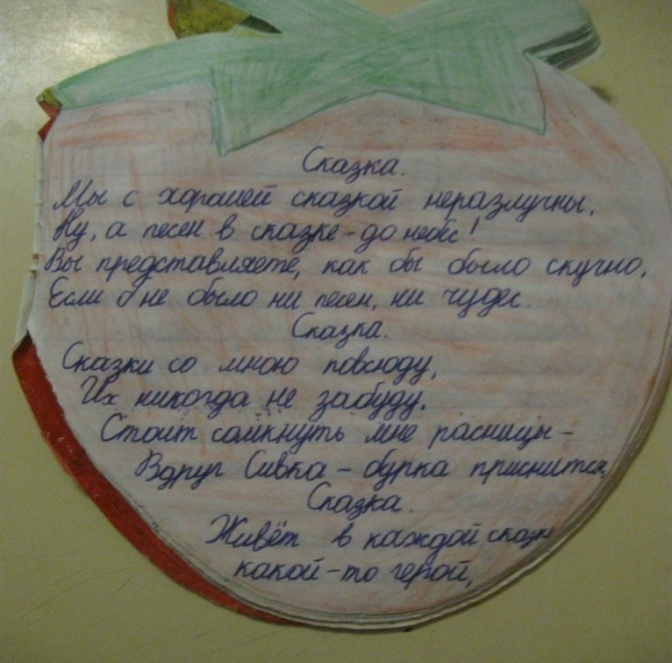 Сказка.
Мы с хорошей сказкой неразлучны,
Ну, а песен в сказке - до небес!
Вы представляете, как бы было скучно,
Если б не было ни песен, ни чудес.
Сказка.
Сказки со мною повсюду,
Их никогда не забуду.
Стоит сомкнуть мне расницы -
Вдруг Сивка - бурка приснится
Сказка.
Живёт в каждой сказке
какой-то герой,